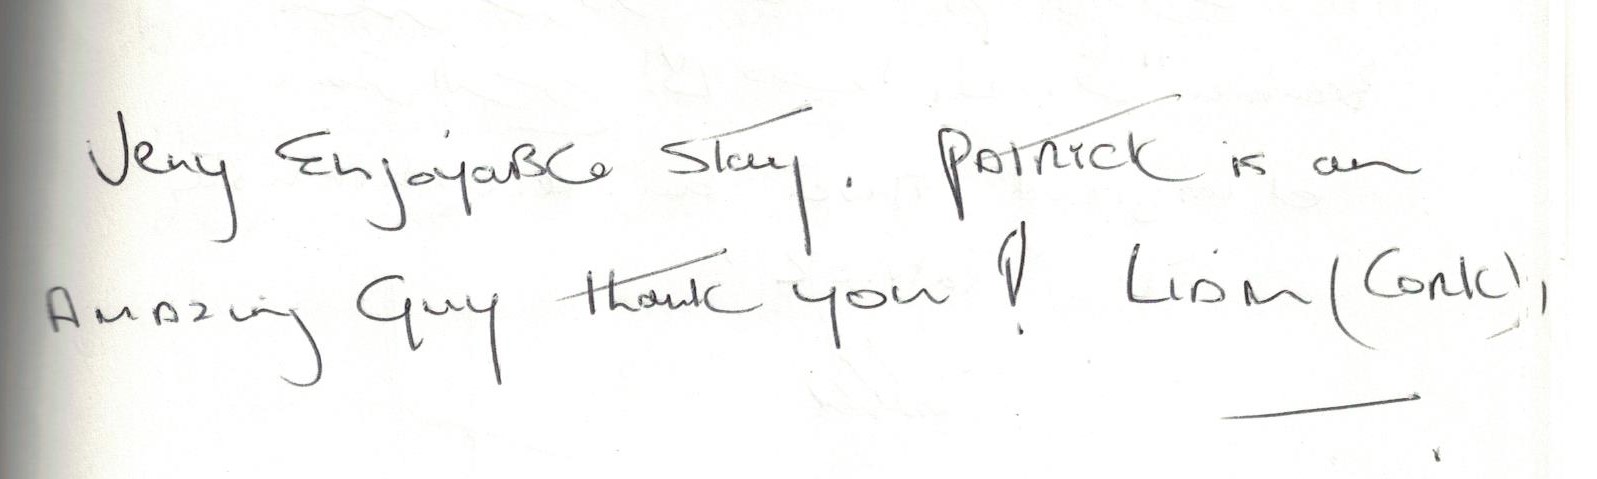 Very Enjoyable Stay. Patrick is an
Amazing Guy thank you! Liam (Cork),